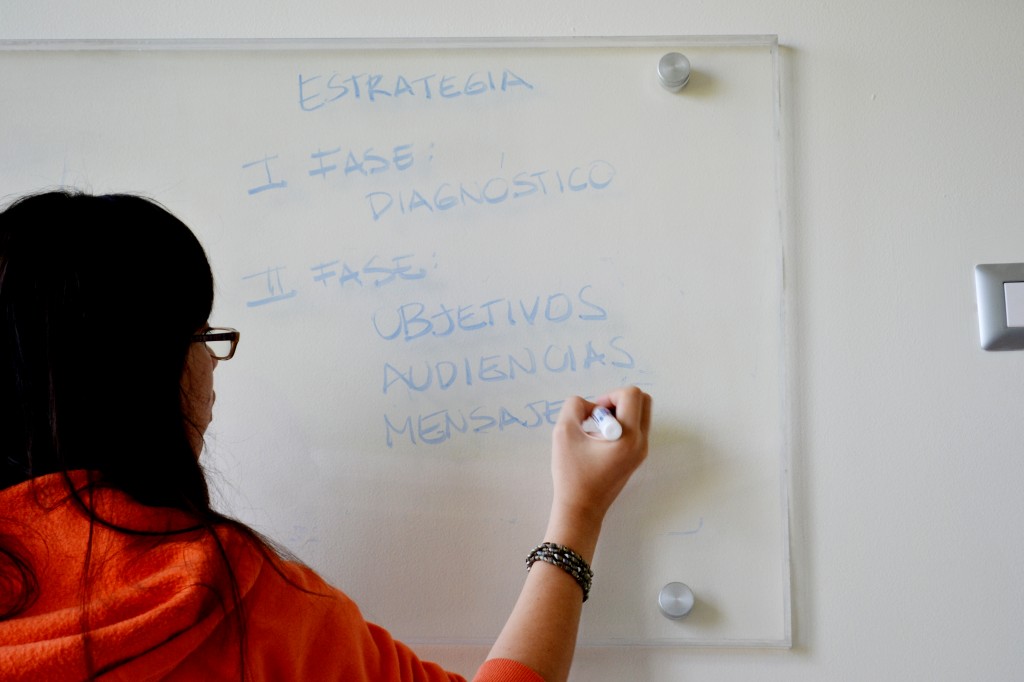 ESTRATEGIA
I FASE:
DIAGNÓSTICO
II FASE:
OBJETIVOS
AUDIENCIAS
MENSAJE